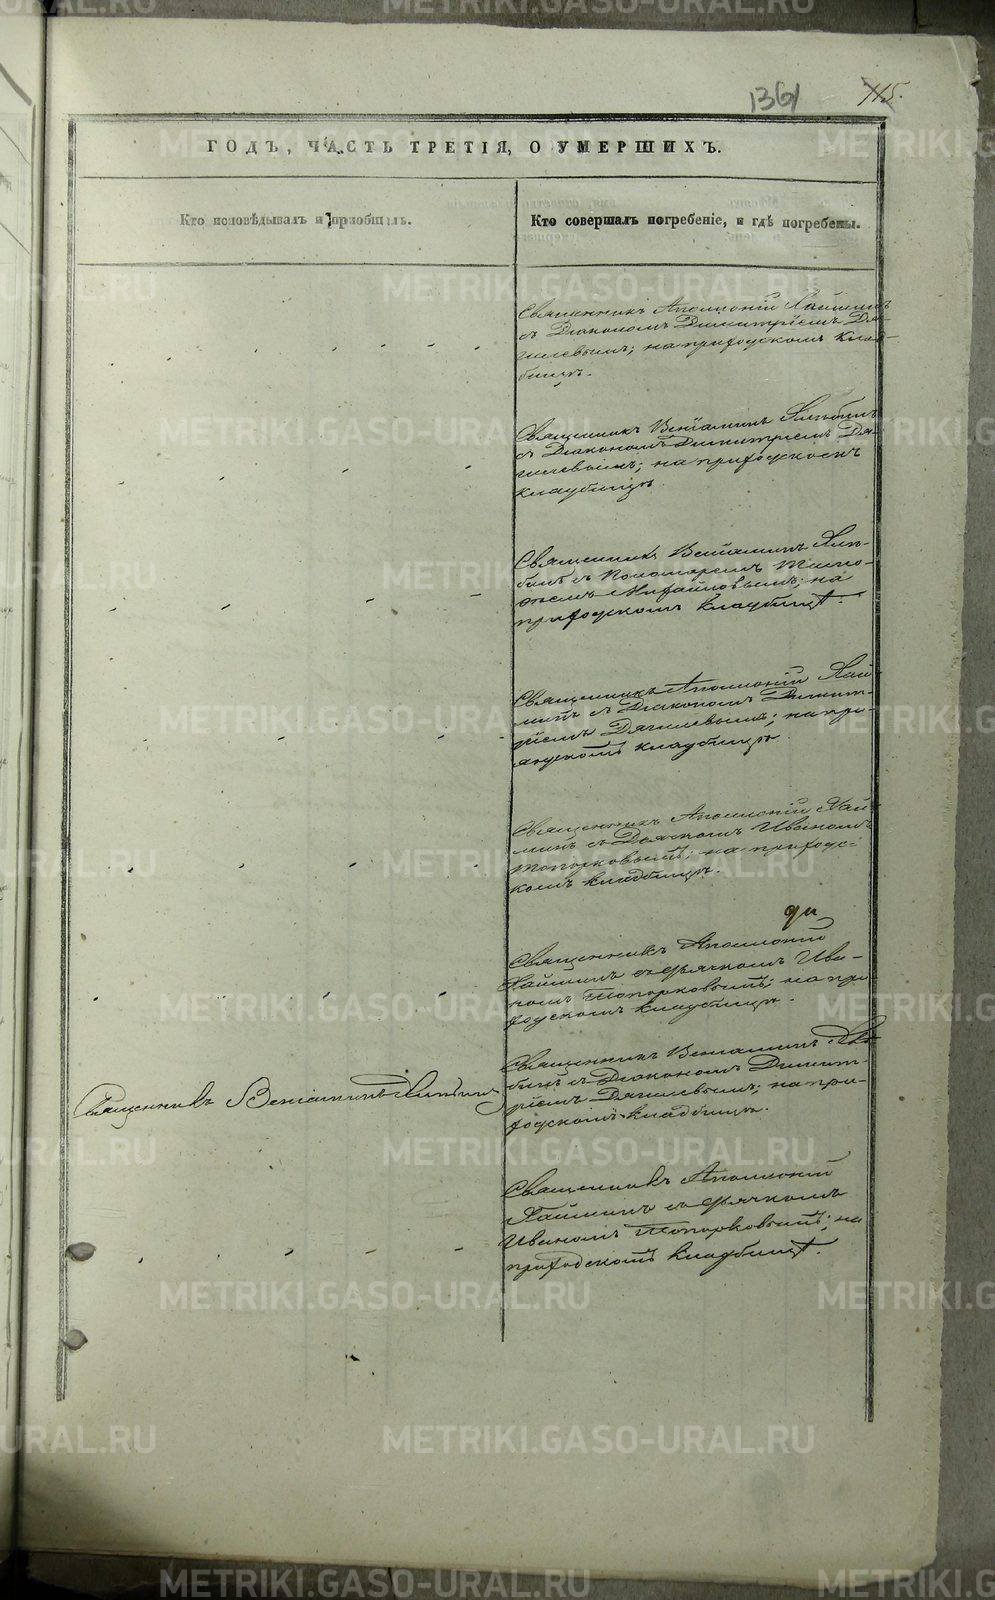 1361
115.
ГОДЪ, ЧАСТЬ ТРЕТІЯ, О УМЕРШИХЪ.
Кто исповѣдывалъ и пріобщалъ.
Кто совершалъ погребеніе, и гдѣ погребены.
Священникъ Аполлоній
съ Діакономъ Димитріемъ Дя-
гилевымъ; на приходскомъ клад-
бищѣ.
Священникъ Веніаминъ
съ Діакономъ Димитріемъ Дя-
гилевымъ; на приходскомъ
кладбищѣ.
Священникъ Веніаминъ
съ Пономаремъ Тимо-
феемъ на
приходскомъ кладбищѣ.
Священникъ Аполлоній Хай-
минъ съ Діакономъ Димит-
ріемъ Дягилевымъ; на при-
ходскомъ кладбищѣ.
Священникъ Аполлоній Хай-
минъ съ Дьячкомъ Иваномъ
Топорковымъ; на приходс-
комъ кладбищѣ.
Священникъ Аполлоній
Хайминъ съ дьячкомъ Ива-
номъ Топорковымъ; на при-
ходскомъ кладбищѣ.
Священникъ Веніаминъ
съ Діакономъ Димит-
ріемъ Дягилевымъ; на при-
ходскомъ кладбищѣ.
Священникъ Веніаминъ
Священникъ Аполлоній
Хайминъ съ дьячкомъ
Иваномъ Топорковымъ; на
приходскомъ кладбищѣ.
METRIKI.GASO-URAL.RU